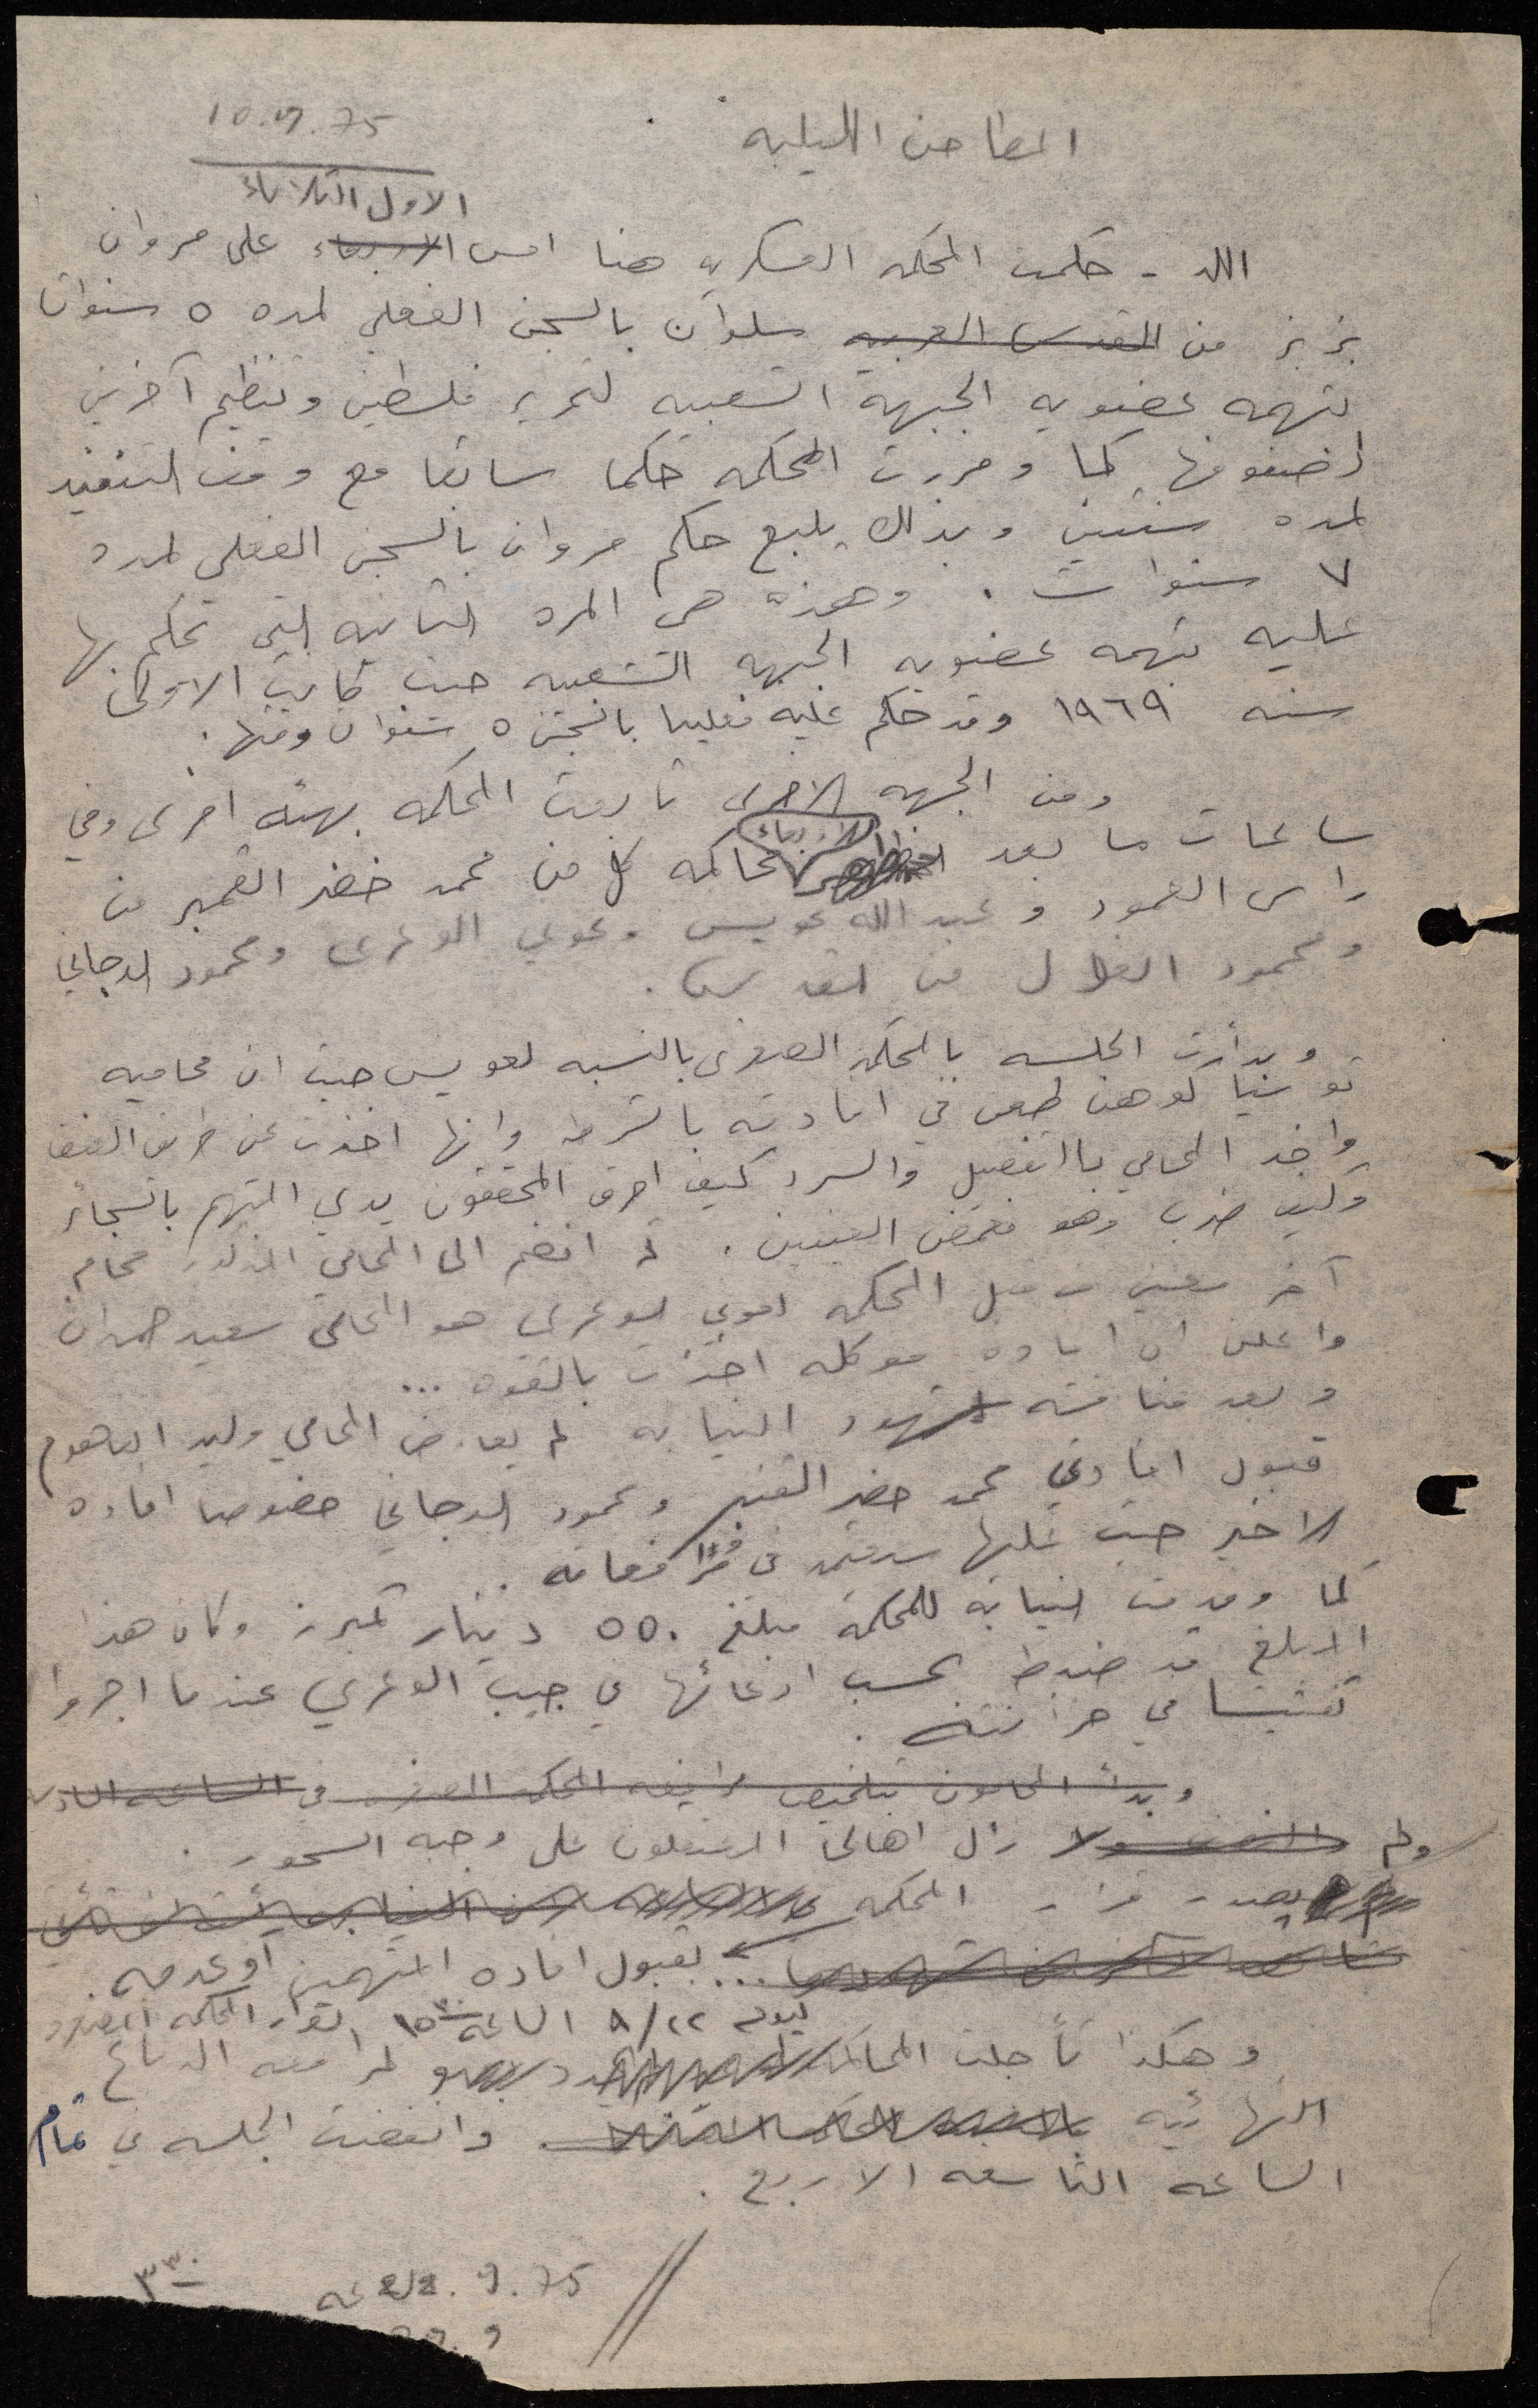 10.9.75
المطاحن الليلية
الاول الثلاثاء
اللد - حكمت المحكمه العسكريه هنا امس الاربعاء على مروان
بزبز من القدس العربيه سلوان بالسجن الفعلي لمده ٥ سنوات
بتهمه عضويه الجبهة الشعبيه لتحرير فلسطين وتنظيم آخرين
لصفوفها كما وقررت المحكمه حكما سابقا مع وقف التنفيذ
لمده سنتين وبذلك يبلغ حكم مروان بالسجن الفعلي لمده
٧ سنوات . وهذه هي المره الثانيه التي تحكم بها
عليه بتهمه عضويه الجبهه الشعبيه حيث كانت الاولى
سنه ١٩٦٩ وقد حكم عليه فعليا بالسجن ٥ سنوات وقتها .
ومن الجهه الاخرى تابعت المحكمه بهيئه اخرى وفي
ساعات ما بعد الاربعاء محاكمه كل من محمد خضر القمبر من
راس العمود و عبد الله عويس وعوني الوعري ومحمود الدجاني
ومحمود الهلال من القدس .
وبدأت الجلسه بالمحكمه الصغرى بالنسبه لعويس حيث ان محاميه
توسيا كوهن طعن في افادته بالشرطه وانها اخذت عن طريق العنف
واخذ المحامي بالتفصيل والسرد كيف احرق المحققون يدي المتهم بالسجائر
وكيف ضرب وهو مغمض العينين . ثم انضم الى المحامي المذكور محام
آخر معين من قبل المحكمه لعوني الوعري هو المحامي سعيد حمدان
واعلن ان افاده موكله اخذت بالقوه ...
وبعد مناقشه شهود النيابه لم يعارض المحامي وليد الفاهوم
قبول افادتي محمد خضر القنبر ومحمود الدجاني خصوصا افاده
الاخير حيث عليها سيعتمد في مرافعاته .
كما وقدمت النيابه للمحكمه مبلغ ٥٥٠ دينار كمبرز وكان هذا
المبلغ قد ضبط بحسب ادعائها في جيب الوعري عندما اجروا
تفتيشا في خزانته .
وبدأ المحامون بتلخيص مرافعه المحكمه الصغرى في الساعه
ولم ولا زال اهالي المعتقلون على وجبه السحور .
يصدر قرار المحكمه
... بقبول افاده المتهمين او عدمه .
ليوم ٩/٢٢ الساعه ١٥٣٠ لقرار المحكمه الصغرى
وهكذا تأجلت المحاكمه لمرافعه الدفاع
النهائيه وانفضت الجلسه في تمام
الساعه التاسعه الا ربع .
22.9.75 ٣٣٠